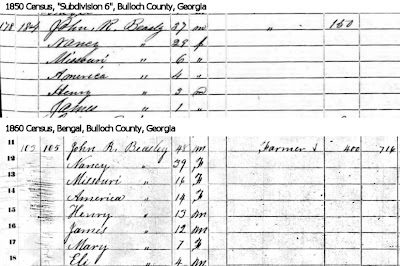 1850 Census, "Subdivision 6", Bulloch County, Georgia
178 184 John, R. Beasly 37 m " 150
Nancy " 28 f
Missouri " 6 "
America " 4 "
Henry " 2 m
James " 1 "
1860 Census, Bengal, Bulloch County, Georgia
11 105 105 John R. Beasley 48 m Farmer 400 714
12 Nancy " 39 f
13 Missouri " 16 f
14 America " 14 f
15 Henry " 13 m
16 James " 12 m
17 Mary " 7 f
18 Eli " 4 m